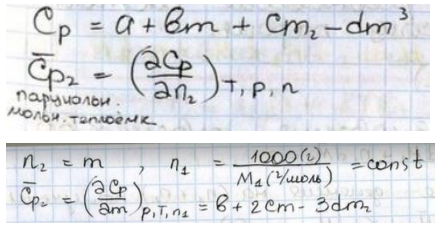 Cp = a + bm + cm₂ - dm³
C̄p₂ = (∂Cp/∂n₂)T,P,n
парциальн.
мольн. теплоёмк
n₂ = m , n₁ = 1000(г)/M₁(г/моль) = const
C̄p₂ = (∂Cp/∂m)P,T,n₁ = b + 2cm - 3dm₂